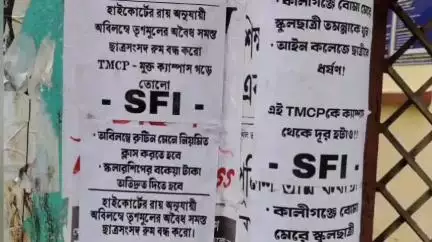 হাইকোর্টের রায় অনুযায়ী
অবিলম্বে তৃণমূলের অবৈধ সমস্ত
ছাত্রসংসদ রুম বন্ধ করো
TMCP - মুক্ত ক্যাম্পাস গড়ে
তোলো
- SFI -
· অবিলম্বে রুটিন মেনে নিয়মিত
ক্লাস করতে হবে
· স্কলারশিপের বকেয়া টাকা
অতিদ্রুত দিতে হবে
হাইকোর্টের রায় অনুযায়ী
অবিলম্বে তৃণমূলের অবৈধ সমস্ত
ছাত্রসংসদ রুম বন্ধ করো।
· কালীগঞ্জে বোমা মেরে
স্কুলছাত্রী তমন্নাকে খুন
· আইন কলেজে ছাত্রীর
ধর্ষণ!
এই TMCPকে ক্যাম্পাস
থেকে দূর হটাও!!
- SFI -
· কালীগঞ্জে বোমা
মেরে স্কুলছাত্রী